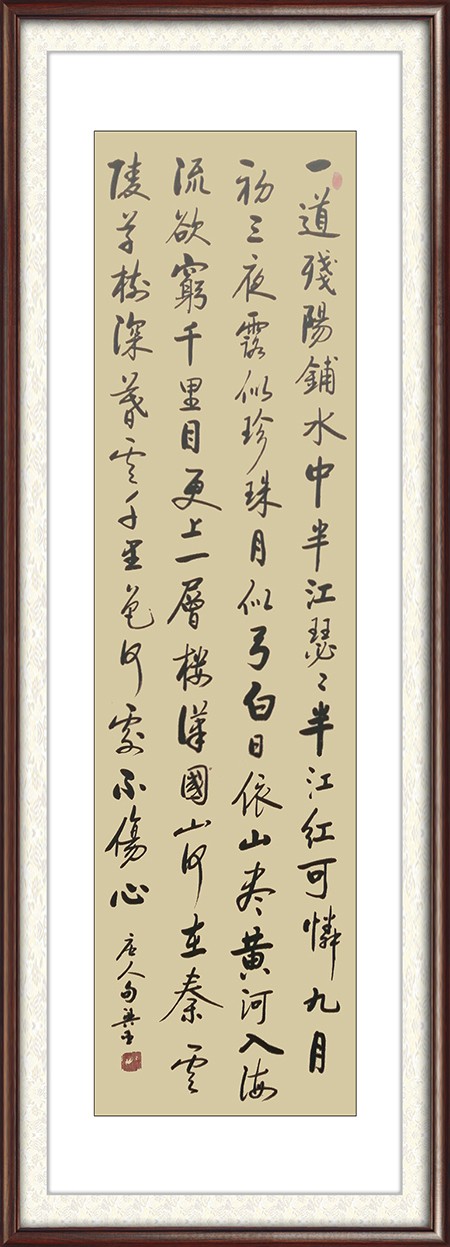 一道殘陽鋪水中半江瑟〻半江紅可憐九月
初三夜露似珍珠月似弓白日依山盡黃河入海
流欲窮千里目更上一層樓漢國山河在秦雲
陵草樹深暮雲千里色何處不傷心
唐人句